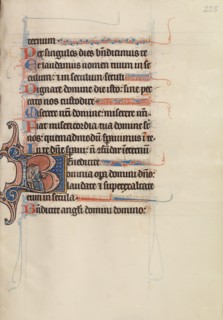 225
ternum
Per singulos dies benedicimus te
Et laudamus nomen tuum in se
culum: 7 in seculum seculi
Dignare domine die isto: sine pec
cato nos custodire
Miserere nri domine: miserere nri
Fiat misericordia tua domine sr
nos: quemadmodum sperauimus ī te
In te dñe speraui: nō confundar in eternū
Benedicite
omnia opa domini dño:
laudate 7 superexaltate
eum in secula
Benedicite angli domini domino: